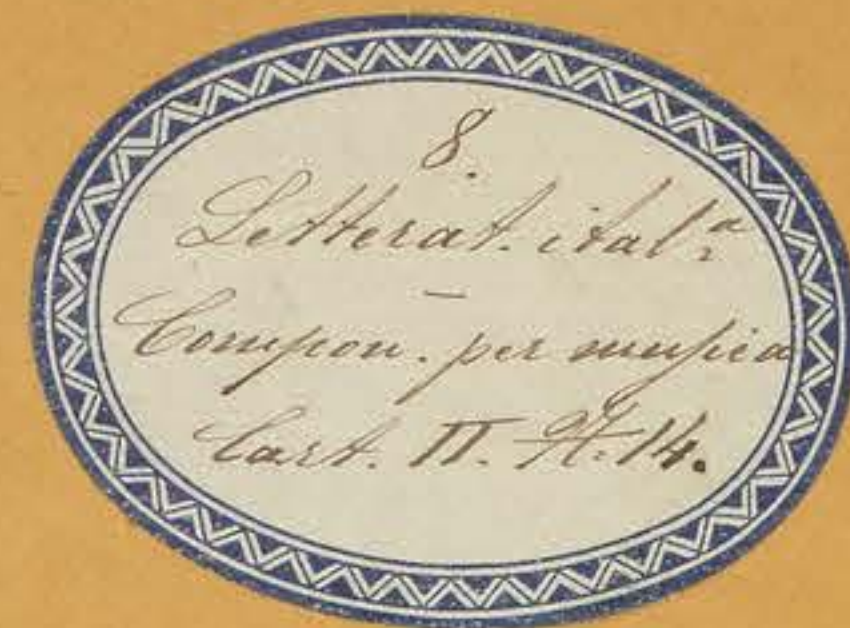 8.
Letterat. ital.ª
-
Compon. per musica
Cart. II. N. 14.